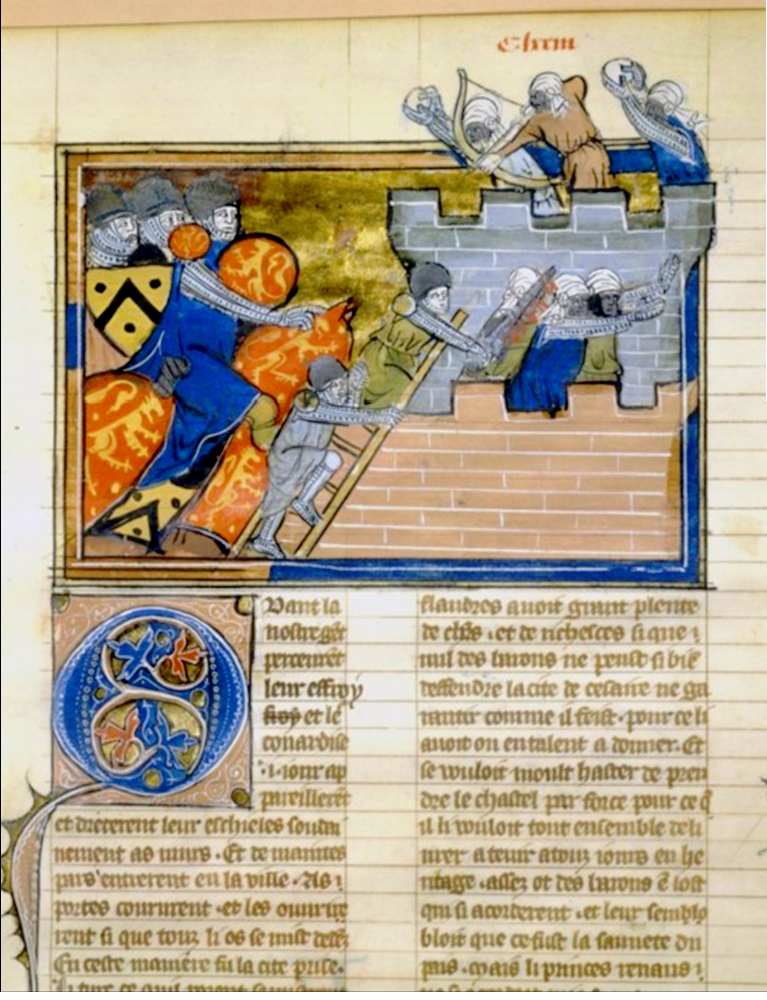 Vant la
nostre gēt
perceurēt
leur effroy
et le
couardise
.i. iour ap
pareillerēt
et drecerent leur eschieles soudai
nement as murs. Et de maintes
pars entrerent en la ville. As
portes coururent. et les ouurirē
rent si que touz li os se mist dedēz
En ceste maniere fu la cite prise.
flandres auoit grant plente
de et de richesces si que
nul des barons ne peust si biē
deffendre la cite de cesaire ne ga
rantir comme il feist. pour ce li
auoit on en talent a donner. Et
se vouloit moult haster de pren
dre le chastel par force pour ce q̄
il li vouloit tout ensemble deli
urer a tenir a touz iours en he
ritage. assez ot des barons ē lost
qui si acorderent. et leur sembloit
bloit que ce fust la sauuete du
pais. mais li princes renaus